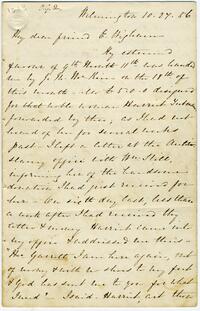 Wilmington 10-27. 56
My dear friend E. Wigham
My esteemed
favour of 9th Month 11th was handed
me by J. M. McKim on the 18th of
this month. also to £5.0.0 designed
for that noble woman Harriet Tubman
forwarded by thee, as I had not
heard of her for several weeks
past. I left a letter at the Anti
slavery office with Wm Still,
informing her of the handsome
donation I had just received for
her – On sixth day last, less than
a week after I had received thy
letter & money Harriet came into
my office & addressed me thus –
"Mr. Garrett I am here again, out
of money & with no shoes to my feet
& God has sent me to you for what
I need". I said Harriet, art thou